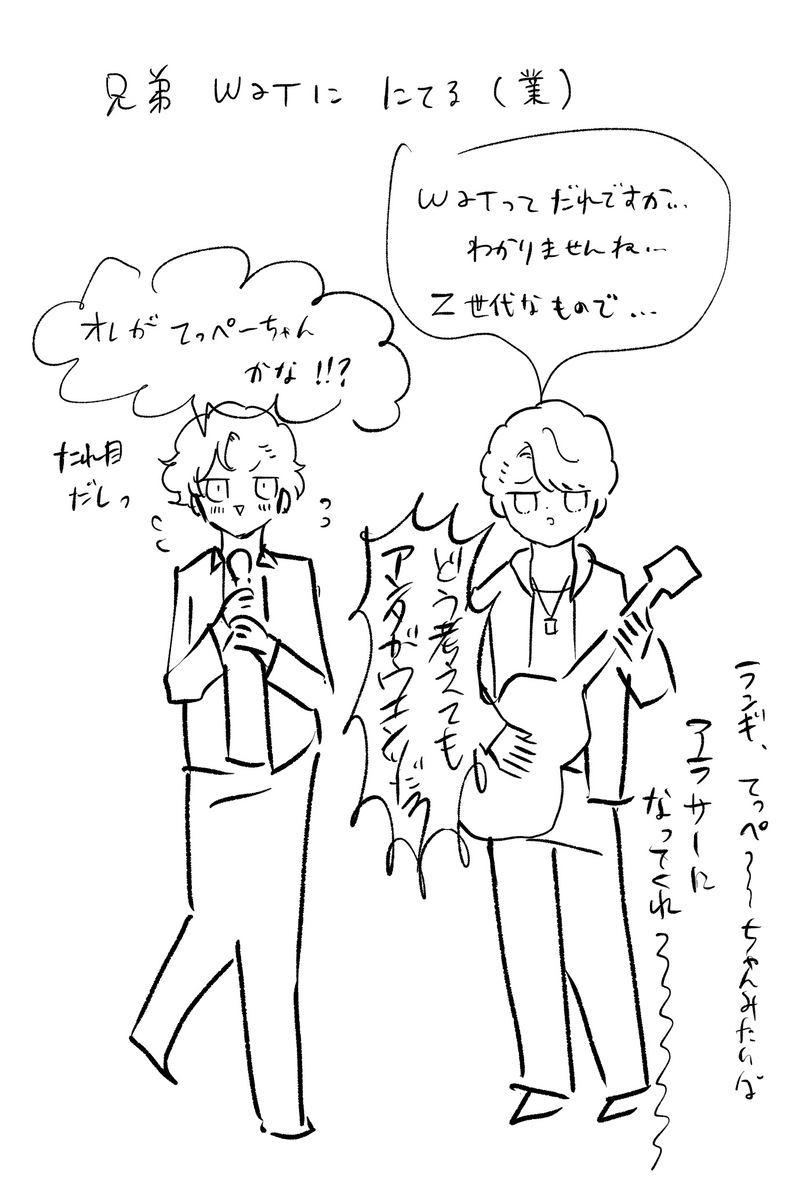 兄弟 WaTに にてる(業)
WaTって だれですか…
わかりませんね…
Z世代なもので…
オレが てっぺーちゃん
かな!!?
たれ目
だしっ
どう考えても
アンタがウエンツだ
ランギ、てっぺ〜〜ちゃんみたいな
アラサーに
なってくれ〜〜〜〜